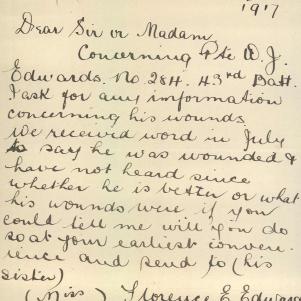 1917
Dear Sir or Madam
Concerning Pte A. J.
Edwards. No. 284. 43rd Batt.
I ask for any imformation
concerning his wounds
We received word in July
to say he was wounded &
have not heard since
whether he is better or what
his wounds were if you
could tell me will you do
so at your earliest conven-
ience and send to (his
sister)
(Miss) Florence E Edwar